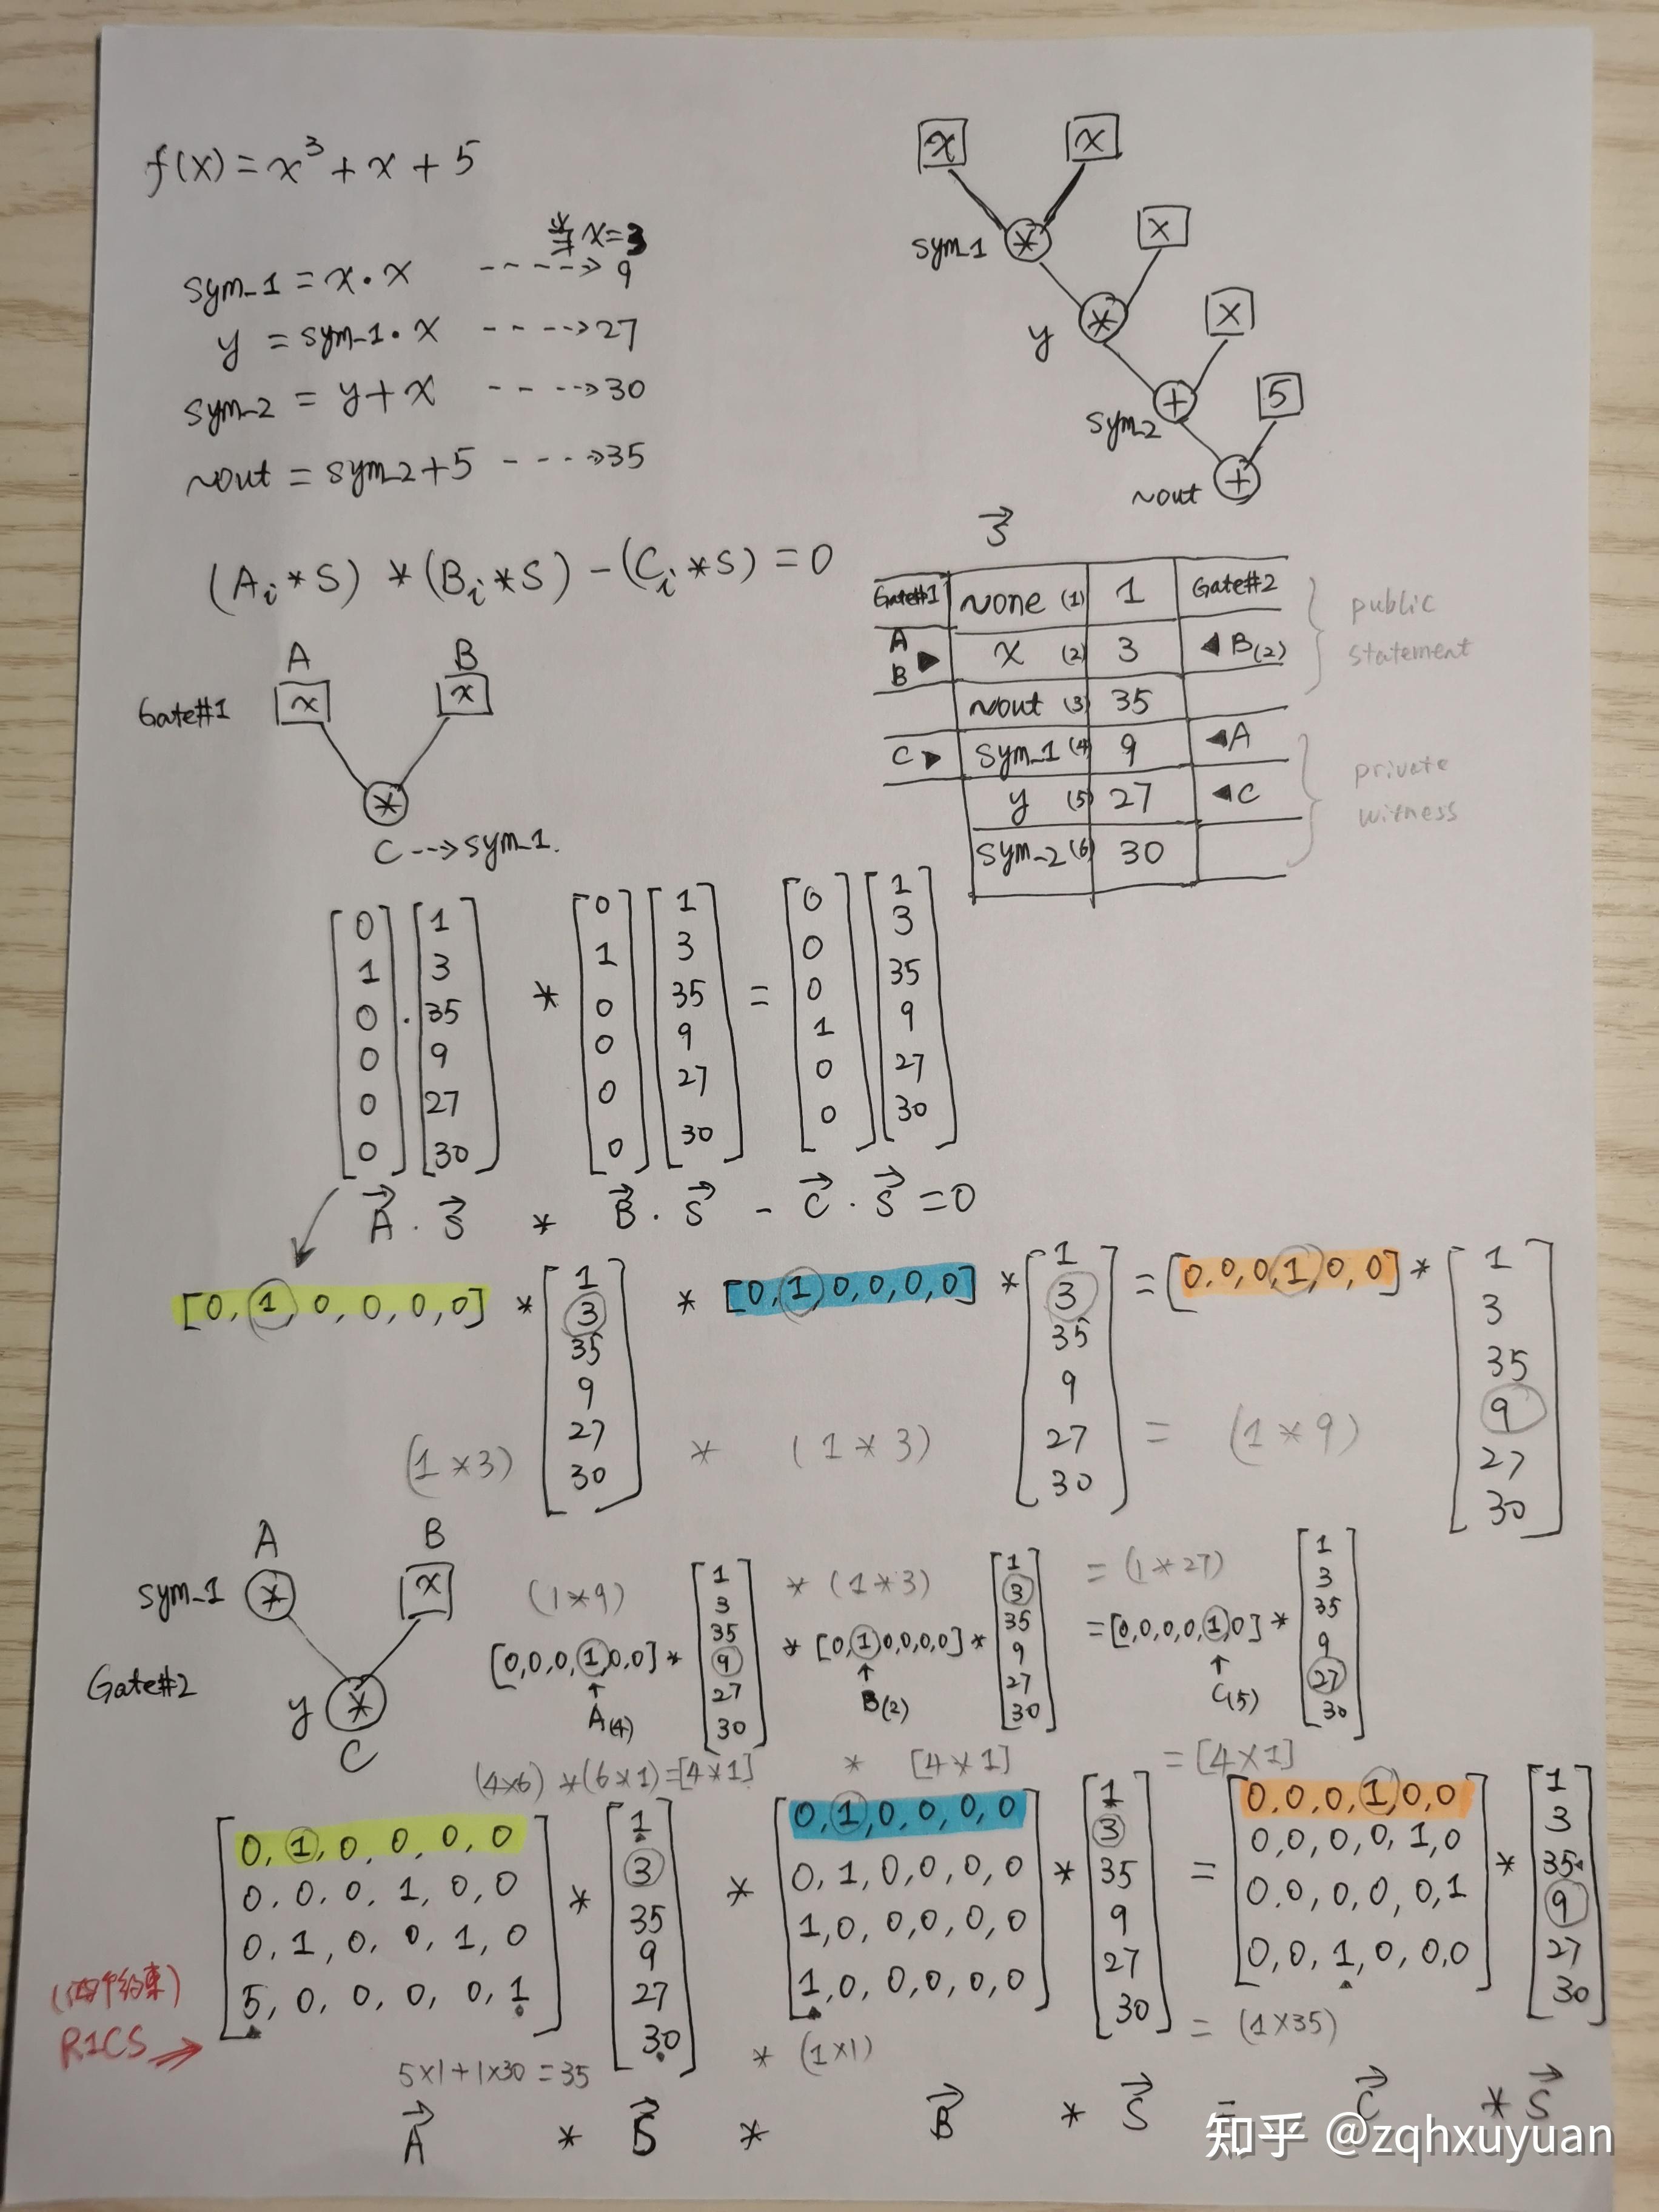 f(x) = x³ + x + 5
x=3
sym_1 = x · x ----> 9
y = sym_1 · x ----> 27
sym_2 = y + x ----> 30
~out = sym_2 + 5 ----> 35
x x
sym_1 * x
y * x
sym_2 + 5
~out +
(Aᵢ * S) * (Bᵢ * S) - (Cᵢ * S) = 0
S
Gate#1 ~one (1) 1 Gate#2
A B ▶ x (2) 3 ◀ B(2)
~out (3) 35
C ▶ sym_1 (4) 9 ◀ A
y (5) 27 ◀ C
sym_2 (6) 30
public
statement
private
witness
A B
Gate#1 x x
*
C --> sym_1.
[0 1 0 0 0 0] · [1 3 35 9 27 30] * [0 1 0 0 0 0] [1 3 35 9 27 30] = [0 0 0 1 0 0] [1 3 35 9 27 30]
A · S * B · S - C · S = 0
[0, 1, 0, 0, 0, 0] * [1 3 35 9 27 30] * [0, 1, 0, 0, 0, 0] * [1 3 35 9 27 30] = [0, 0, 0, 1, 0, 0] * [1 3 35 9 27 30]
(1 * 3) * (1 * 3) = (1 * 9)
A B
sym_1 * x
Gate#2
y *
C
(1 * 9) * (1 * 3) = (1 * 27)
[0,0,0,1,0,0] * [1 3 35 9 27 30] * [0,1,0,0,0,0] * [1 3 35 9 27 30] = [0,0,0,0,1,0] * [1 3 35 9 27 30]
A(4) B(2) C(5)
(4×6) * (6×1) = [4×1] * [4×1] = [4×1]
0, 1, 0, 0, 0, 0
0, 0, 0, 1, 0, 0
0, 1, 0, 0, 1, 0
5, 0, 0, 0, 0, 1
* [1 3 35 9 27 30] *
0, 1, 0, 0, 0, 0
0, 1, 0, 0, 0, 0
1, 0, 0, 0, 0, 0
1, 0, 0, 0, 0, 0
* [1 3 35 9 27 30] =
0, 0, 0, 1, 0, 0
0, 0, 0, 0, 1, 0
0, 0, 0, 0, 0, 1
0, 0, 1, 0, 0, 0
* [1 3 35 9 27 30]
(四个约束)
R1CS
5×1+1×30=35 * (1×1) = (1×35)
A * S * B * S = C * S
知乎 @zqhxuyuan